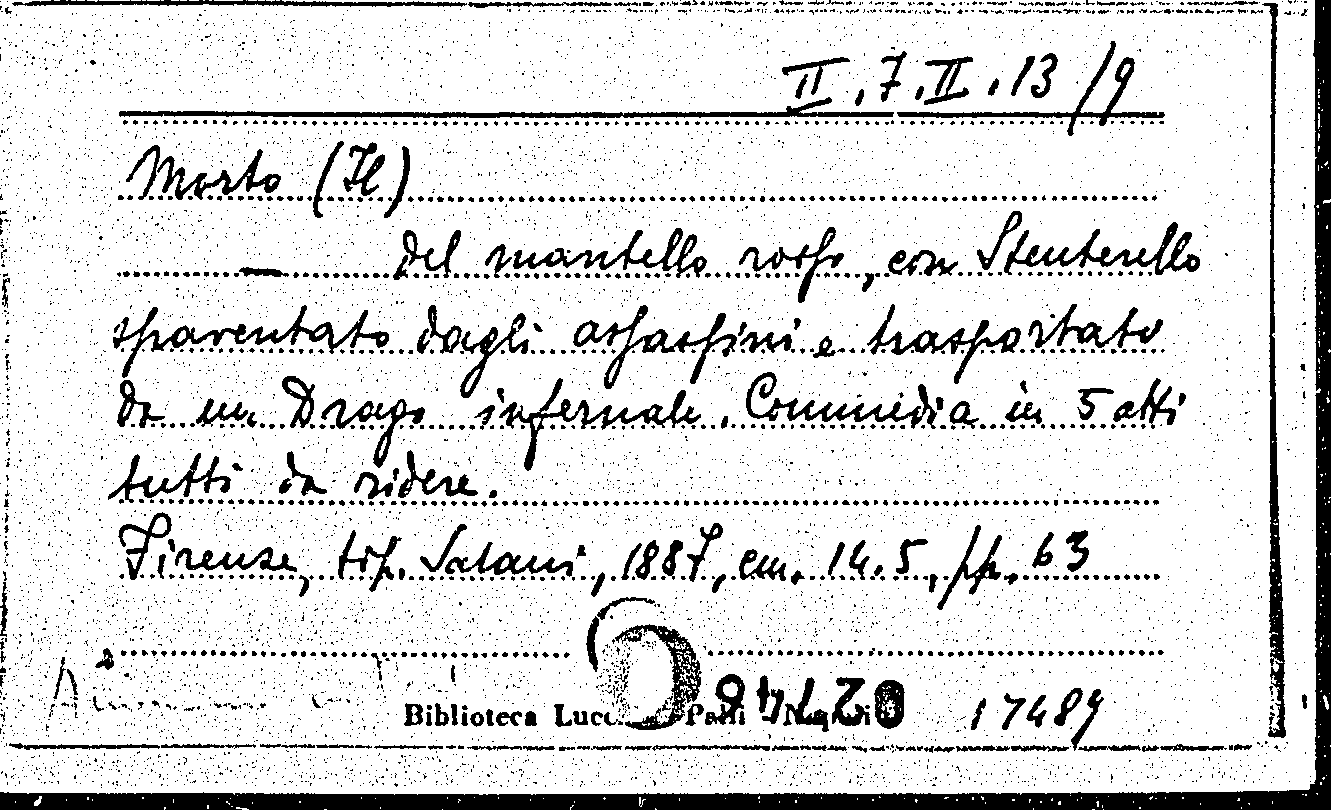 II.7.II.13/9
Morto (Il)
— del mantello rosso, con Stenterello
spaventato dagli assassini e trasportato
da un Drago infernale. Commedia in 5 atti
tutti da ridere.
Firenze, tip. Salani, 1887, cm. 14.5, pp. 63
Biblioteca 17489